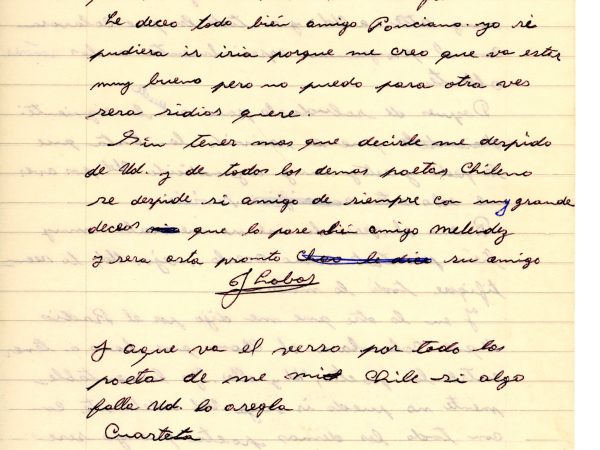 Le deceo todo bién amigo Ponciano. yo si
pudiera ir iria porque me creo que va estar
muy bueno pero no puedo para otra ves
sera sidios quere.
Sin tener mas que decirle me despido
de Ud. y de todos los demas poetas Chileno
se despide si amigo de siempre con muy grande
deceos que lo pase bién amigo melendez
y sera asta pronto Chao le dice su amigo
J Lobos
y aque va el verso por todo los
poeta de me Chile si algo
falla Ud. lo aregla
Cuarteta